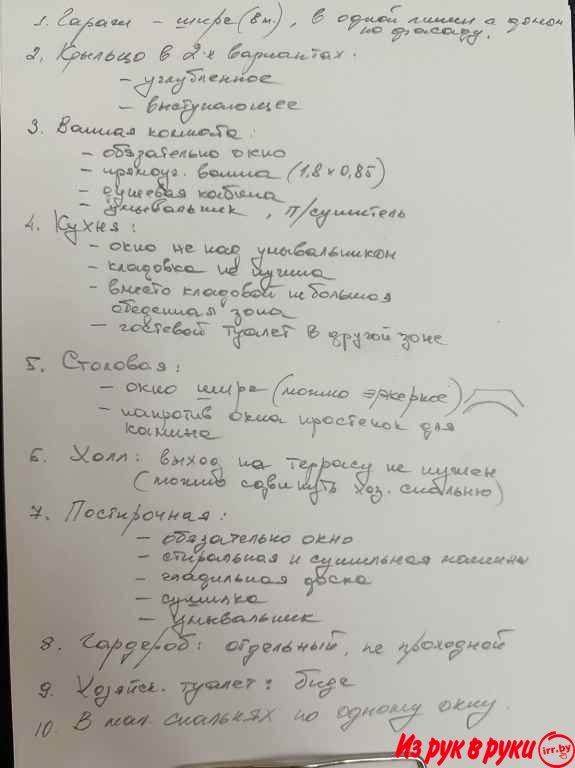 1. Гараж - шире (8м.), в одной линии с домом
по фасаду.
2. Крыльцо в 2-х вариантах.
- углубленное
- выступающее
3. Ванная комната:
- обязательно окно
- прямоуг. ванна (1,8 х 0,85)
- душевая кабина
- умывальник, п/сушитель
4. Кухня:
- окно не над умывальником
- кладовка не нужна
- вместо кладовой небольшая
обеденная зона
- гостевой туалет в другой зоне
5. Столовая:
- окно шире (можно эркерное)
- напротив окна простенок для
камина
6. Холл: выход на террасу не нужен
(можно сдвинуть хоз. спальню)
7. Постирочная:
- обязательно окно
- стиральная и сушильная машины
- гладильная доска
- сушилка
- умывальник
8. Гардероб: отдельный, не проходной
9. Хозяйск. туалет: биде
10. В мал. спальнях по одному окну.
Из рук в руки irr.by